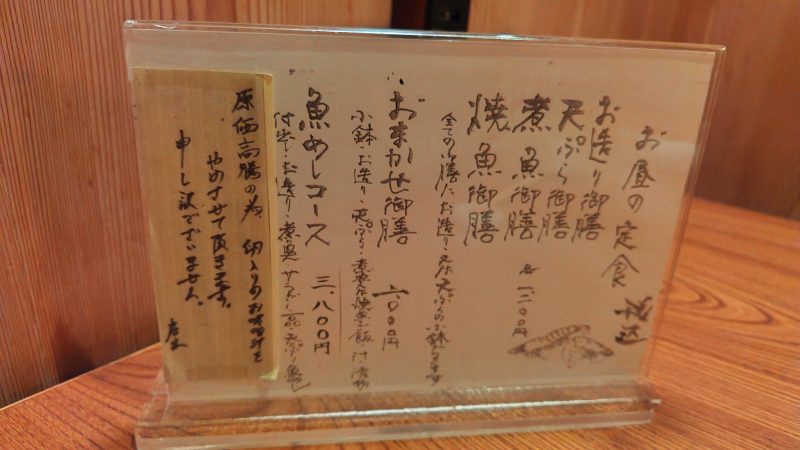 お昼の定食 税込
お造り御膳
天ぷら御膳
煮魚御膳 各 一、二〇〇円
焼魚御膳
全ての御膳に、お造り・又は天ぷらの小鉢
おまかせ御膳 二、〇〇〇円
小鉢・お造り・天ぷら・煮魚又は焼魚・ご飯・汁・漬物
魚めしコース 三、八〇〇円
付出し・お造り・煮魚 サラダ・一品・天ぷら・魚めし
原価高騰の為 卵入りのお味噌汁を
やめさせて頂きます。
申し訳ございません。
店主